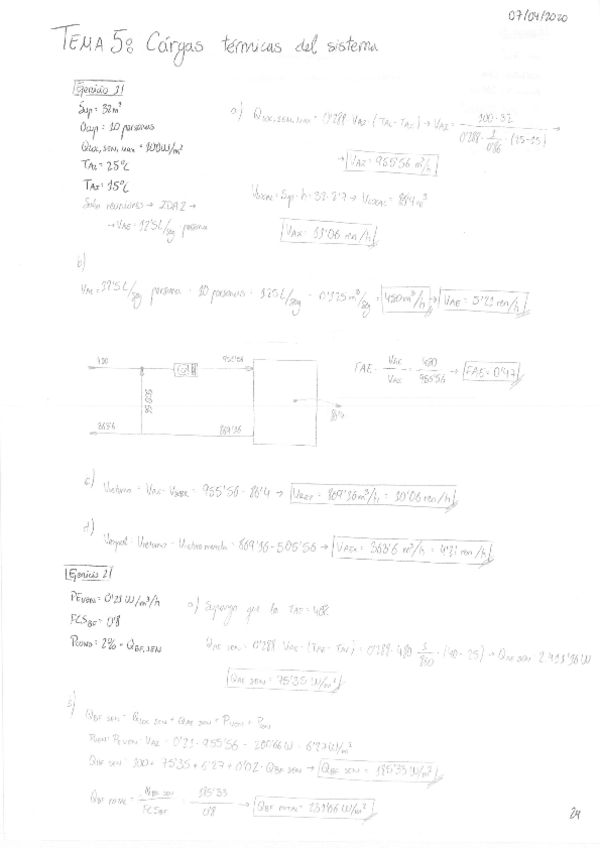 07/04/2020
TEMA 5: Cárgas térmicas del sistema
Ejercicio 1/
Sup = 32 m²
Ocup = 10 personas
QLOC,SEN,MAX = 100 W/m²
TAL = 25ºC
TAI = 15ºC
Sala reuniones → IDA2 →
→ VAE = 12'5 L/seg persona
a) QLOC,SEN,MAX = 0'288 VAI · (TAL - TAI) → VAI = 100 · 32 / 0'288 · · (25-15) →
→ VAI = 955'56 m³/h
VLOCAL = Sup · h = 32 · 2'7 → VLOCAL = 86'4 m³
VAI = 11'06 ren/h
b)
VAE = 12'5 L/seg persona · 10 personas = 125 L/seg = 0'125 m³/seg = 450 m³/h → VAE = 5'21 ren/h
955'56
869'16
86'4
FAE = VAE / VAI = / 955'56 → FAE = 0'47
c) Vretorno = VAI - = 955'56 - 86'4 → VRET = 869'16 m³/h = 10'06 ren/h
d) Vexpul = Vretorno - = 869'16 - 505'56 → = 363'6 m³/h = 4'21 ren/h
Ejercicio 2/
PEVEN = 0'21 W/m³/h
FCSBF = 0'8
PCOND = 2% · QBF,SEN
a) Supongo que la TAE = 40ºC
QAE SEN = 0'288 VAE · (TAE - TAL) = 0'288 · · (40 - 25) → QAE SEN = 2411'16 W
QAE SEN = 75'35 W/m²
b)
QBF SEN = QLOC SEN + QAE SEN + PVEN +
PVEN = PEVEN · VAI = 0'21 · 955'56 = 200'66 W = 6'27 W/m²
QBF SEN = 100 + 75'35 + 6'27 + 0'02 · QBF SEN → QBF SEN = 185'33 W/m²
QBF TOTAL = QBF SEN / FCSBF = 185'33 / 0'8 → QBF TOTAL = 231'66 W/m²
24